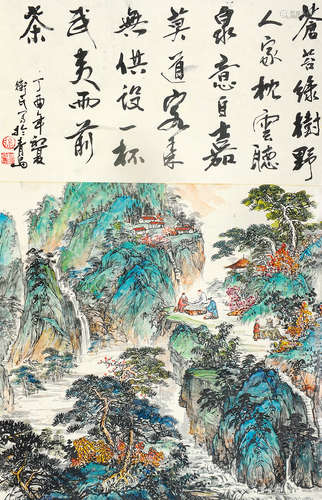 蒼苔綠樹野
人家枕雲聽
泉意自嘉
莫道客來
無供設一杯
武夷雨前
茶
丁酉年初夏
衛民寫於青島